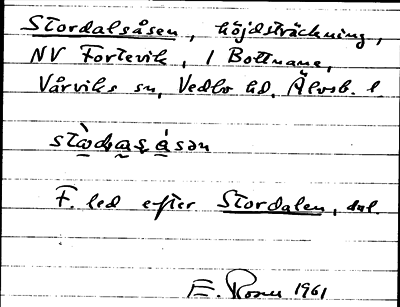 Stordalsåsen, höjdsträckning,
NV Fortevik, i Bottnane,
Vårviks sn, Vedbo hd, Älvsb. l
F. led efter Stordalen, dal.
E. Rosen 1961